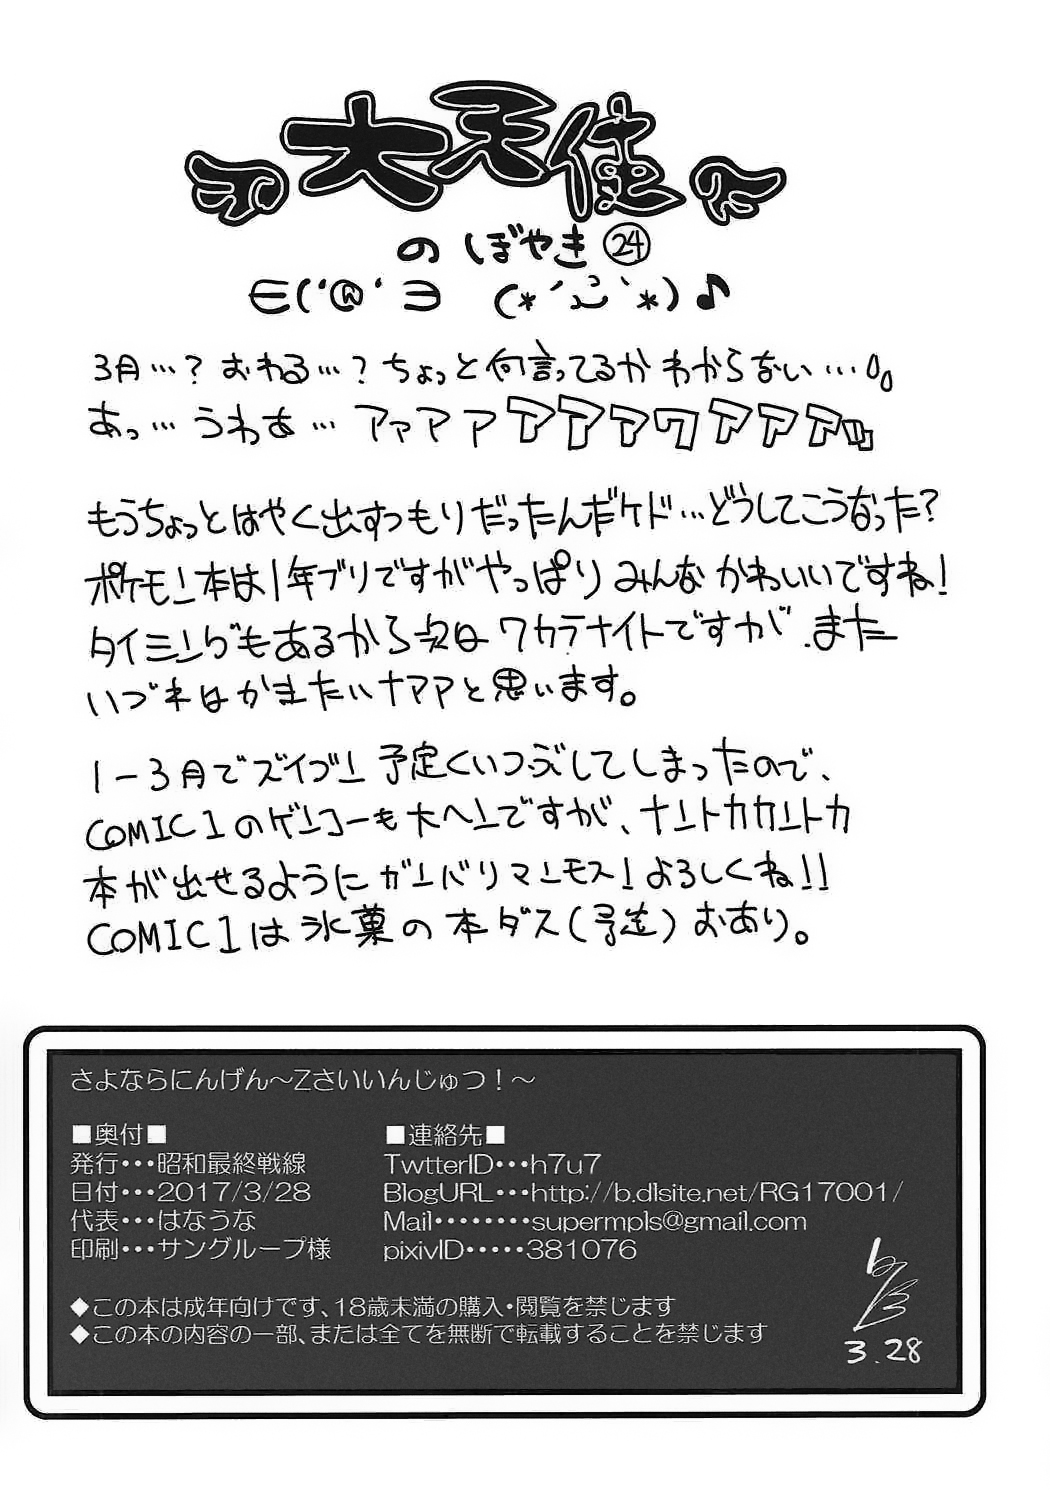 大天使
のぼやき㉔
∈(‘@‘∋ (*´ω`*)♪
3月…?おわる…?ちょっと何言ってるかわからない…
あっ…うわぁ…アァアアアアァワアアアッ
もうちょっとはやく出すつもりだったんだケド…どうしてこうなった?
ポケモン本は1年ブリですがやっぱりみんなかわいいですね!
タイミングもあるから次はワカラナイトですが、また
いづれはかきたいナアアと思います。
1-3月でズイブン予定くいつぶしてしまったので、
COMIC1のゲンコーも大ヘンですが、ナントカカントカ
本が出せるようにガンバリマンモス!よろしくね!!
COMIC1は氷菓の本ダス(予定)おあり。
さよならにんげん～Zさいいんじゅつ!～
■奥付■
発行・・・昭和最終戦線
日付・・・2017/3/28
代表・・・はなうな
印刷・・・サングループ様
■連絡先■
TwtterID・・・h7u7
BlogURL・・・http://b.dlsite.net/RG17001/
Mail・・・・・・・・supermpls@gmail.com
pixivID・・・・・381076
◆この本は成年向けです、18歳未満の購入・閲覧を禁じます
◆この本の内容の一部、または全てを無断で転載することを禁じます
3.28